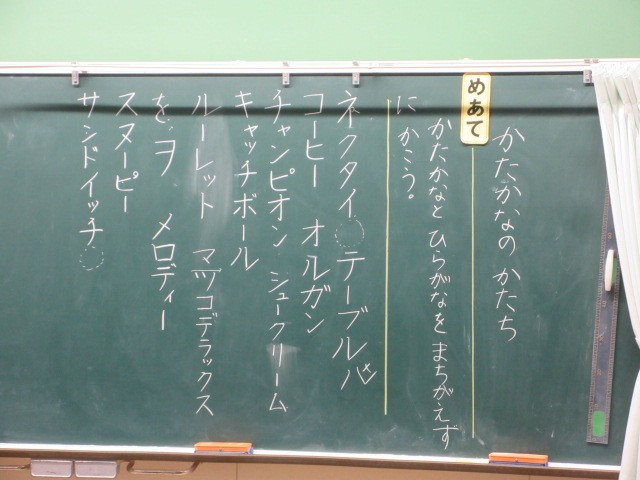 かたかなの かたち
めあて
かたかなと ひらがなを まちがえず
に かこう。
ネクタイ テーブル
コーヒー オルガン
チャンピオン シュークリーム
キャッチボール
ルーレット マツコデラックス
を、ヲ メロディー
スヌーピー
サンドイッチ